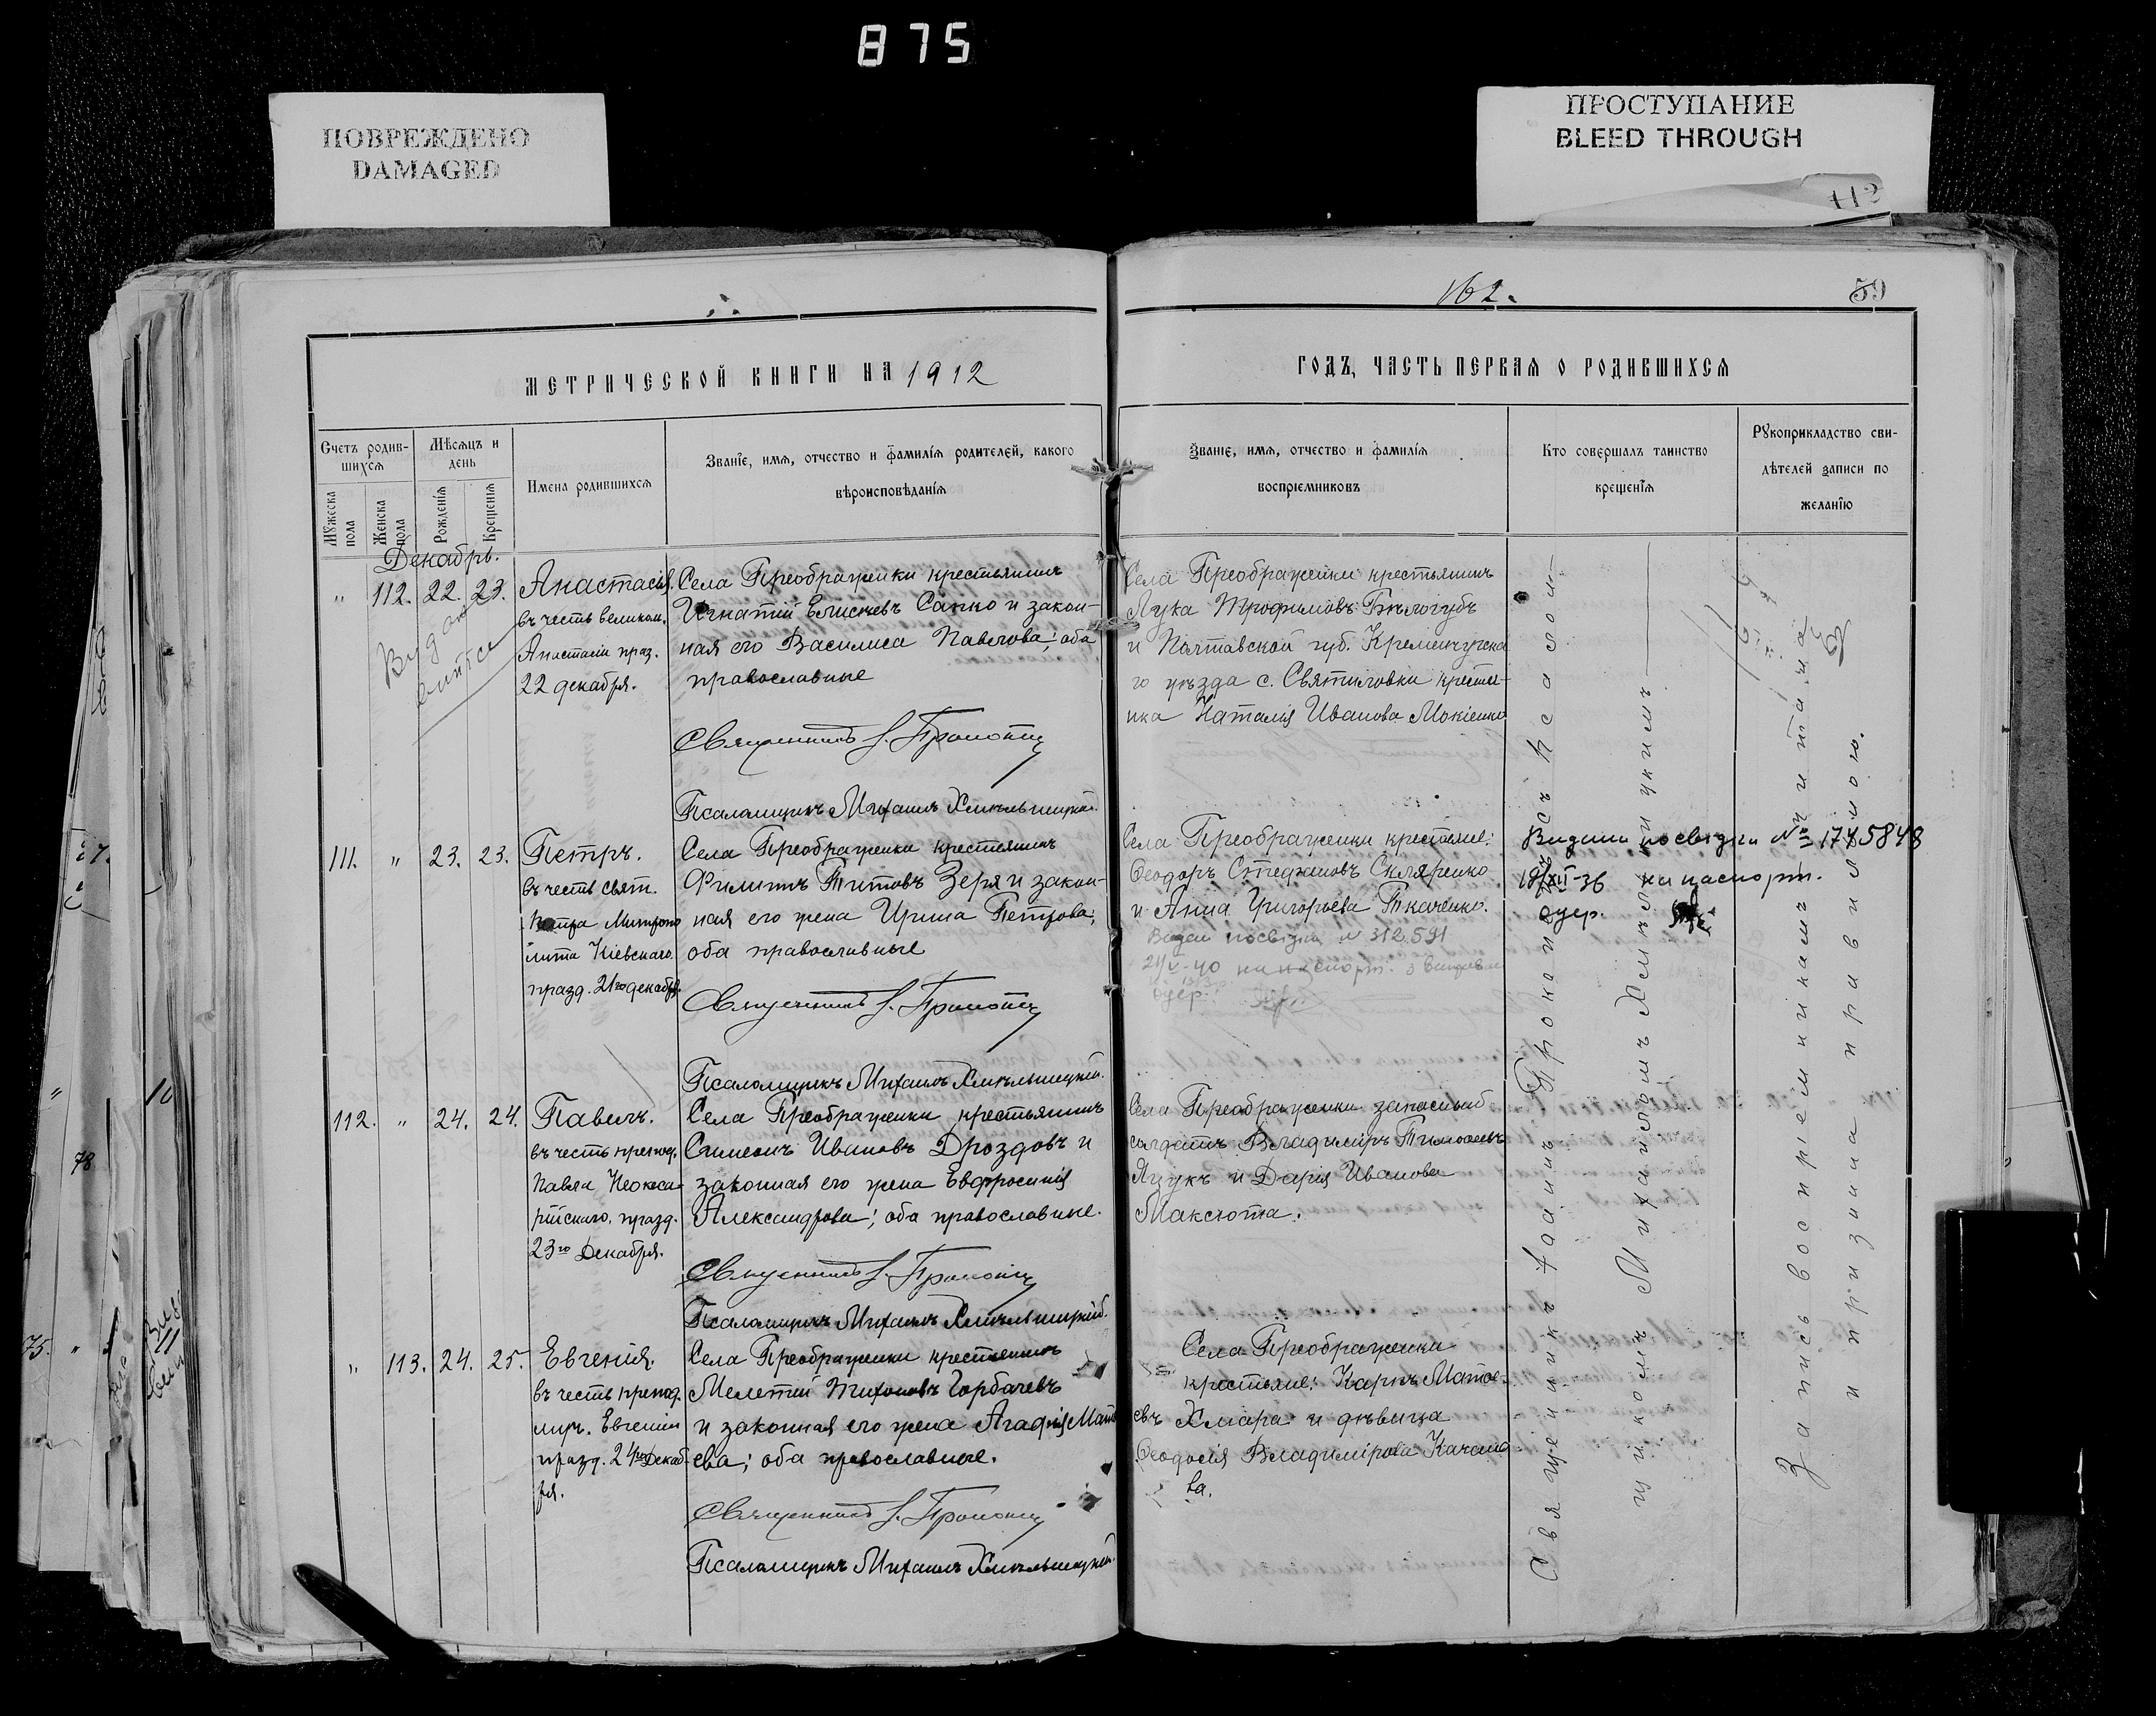 875
ПОВРЕЖДЕНО
DAMAGED
ПРОСТУПАНИЕ
BLEED THROUGH
112
162.
59
МЕТРИЧЕСКОЙ КНИГИ НА 1912
ГОДЪ, ЧАСТЬ ПЕРВАЯ О РОДИВШИХСЯ
Счетъ родив-
шихся
Мужеска пола
Женска пола
Мѣсяцъ и
день
Рожденія
Крещенія
Имена родившихся
Званіе, имя, отчество и фамилія родителей, какого
вѣроисповѣданія
Званіе, имя, отчество и фамилія
воспріемниковъ
Кто совершалъ таинство
крещенія
Рукоприкладство сви-
дѣтелей записи по
желанію
Декабрь.
" 112. 22. 23. Анастасія,
въ честь великом.
Анастасіи праз.
22 декабря.
Села Преображенки крестьянинъ
Игнатій Елисѣевъ Санко и закон-
ная его Василиса Павлова; оба
православные
Священникъ
Псаломщикъ Михаилъ Хмѣльницкій.
Села Преображенки крестьянинъ
Лука Трофимовъ Бѣлогубъ
и Полтавской губ. Кременчугска
го уѣзда с. Святиловки крестья-
нка Наталія Иванова Мокіенко
111. " 23. 23. Петръ.
въ честь свят.
Петра Митропо
лита Кіевскаго
празд. 21го декабря.
Села Преображенки крестьянинъ
Филиппъ Титовъ Зеря и закон-
ная его жена Ирина Петрова;
оба православные
Священникъ
Псаломщикъ Михаилъ Хмѣльницкій.
Села Преображенки крестьяне:
Ѳеодоръ Стефановъ Скляренко
и Анна Григорьева Ткаченко.
посвідки № 312591
24/V-40 на паспорт.
одер.
посвідки № 1745848
19/XII-36 на паспорт.
одер.
112. " 24. 24. Павелъ.
въ честь препод.
Павла Неокеса-
рійскаго, празд.
23го Декабря.
Села Преображенки крестьянинъ
Симеонъ Ивановъ Дроздовъ и
законная его жена Евфросинія
Александрова; оба православные.
Священникъ
Псаломщикъ Михаилъ Хмѣльницкій.
Села Преображенки запасный
солдатъ Владимиръ Тимоѳеевъ
Яцукъ и Дарія Иванова
Максюта.
" 113. 24. 25. Евгенія.
въ честь препод.
муч. Евгеніи
празд. 24го Декаб-
ря.
Села Преображенки крестьянинъ
Мелетій Тихоновъ Горбачевъ
и законная его жена Агафія Матѳ
ева; оба православные.
Священникъ
Псаломщикъ Михаилъ Хмѣльницкій.
Села Преображенки
крестьяне: Карпъ Матѳе-
евъ Хмара и дѣвица
Ѳеодосія Владимірова Качано
ва.
Священникъ Іоаннъ съ Псалом-
щикомъ Михаиломъ Хмѣльницкимъ
Запись воспріемникамъ читана
и признана правильною.